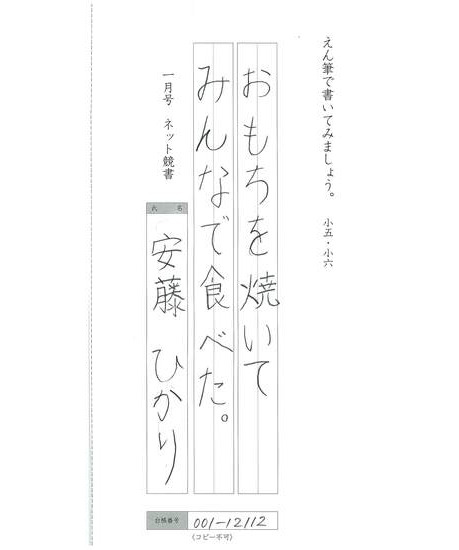 えん筆で書いてみましょう。 小五・小六
おもちを焼いて
みんなで食べた。
一月号 ネット競書
氏名
安藤 ひかり
台帳番号 001-12112
(コピー不可)